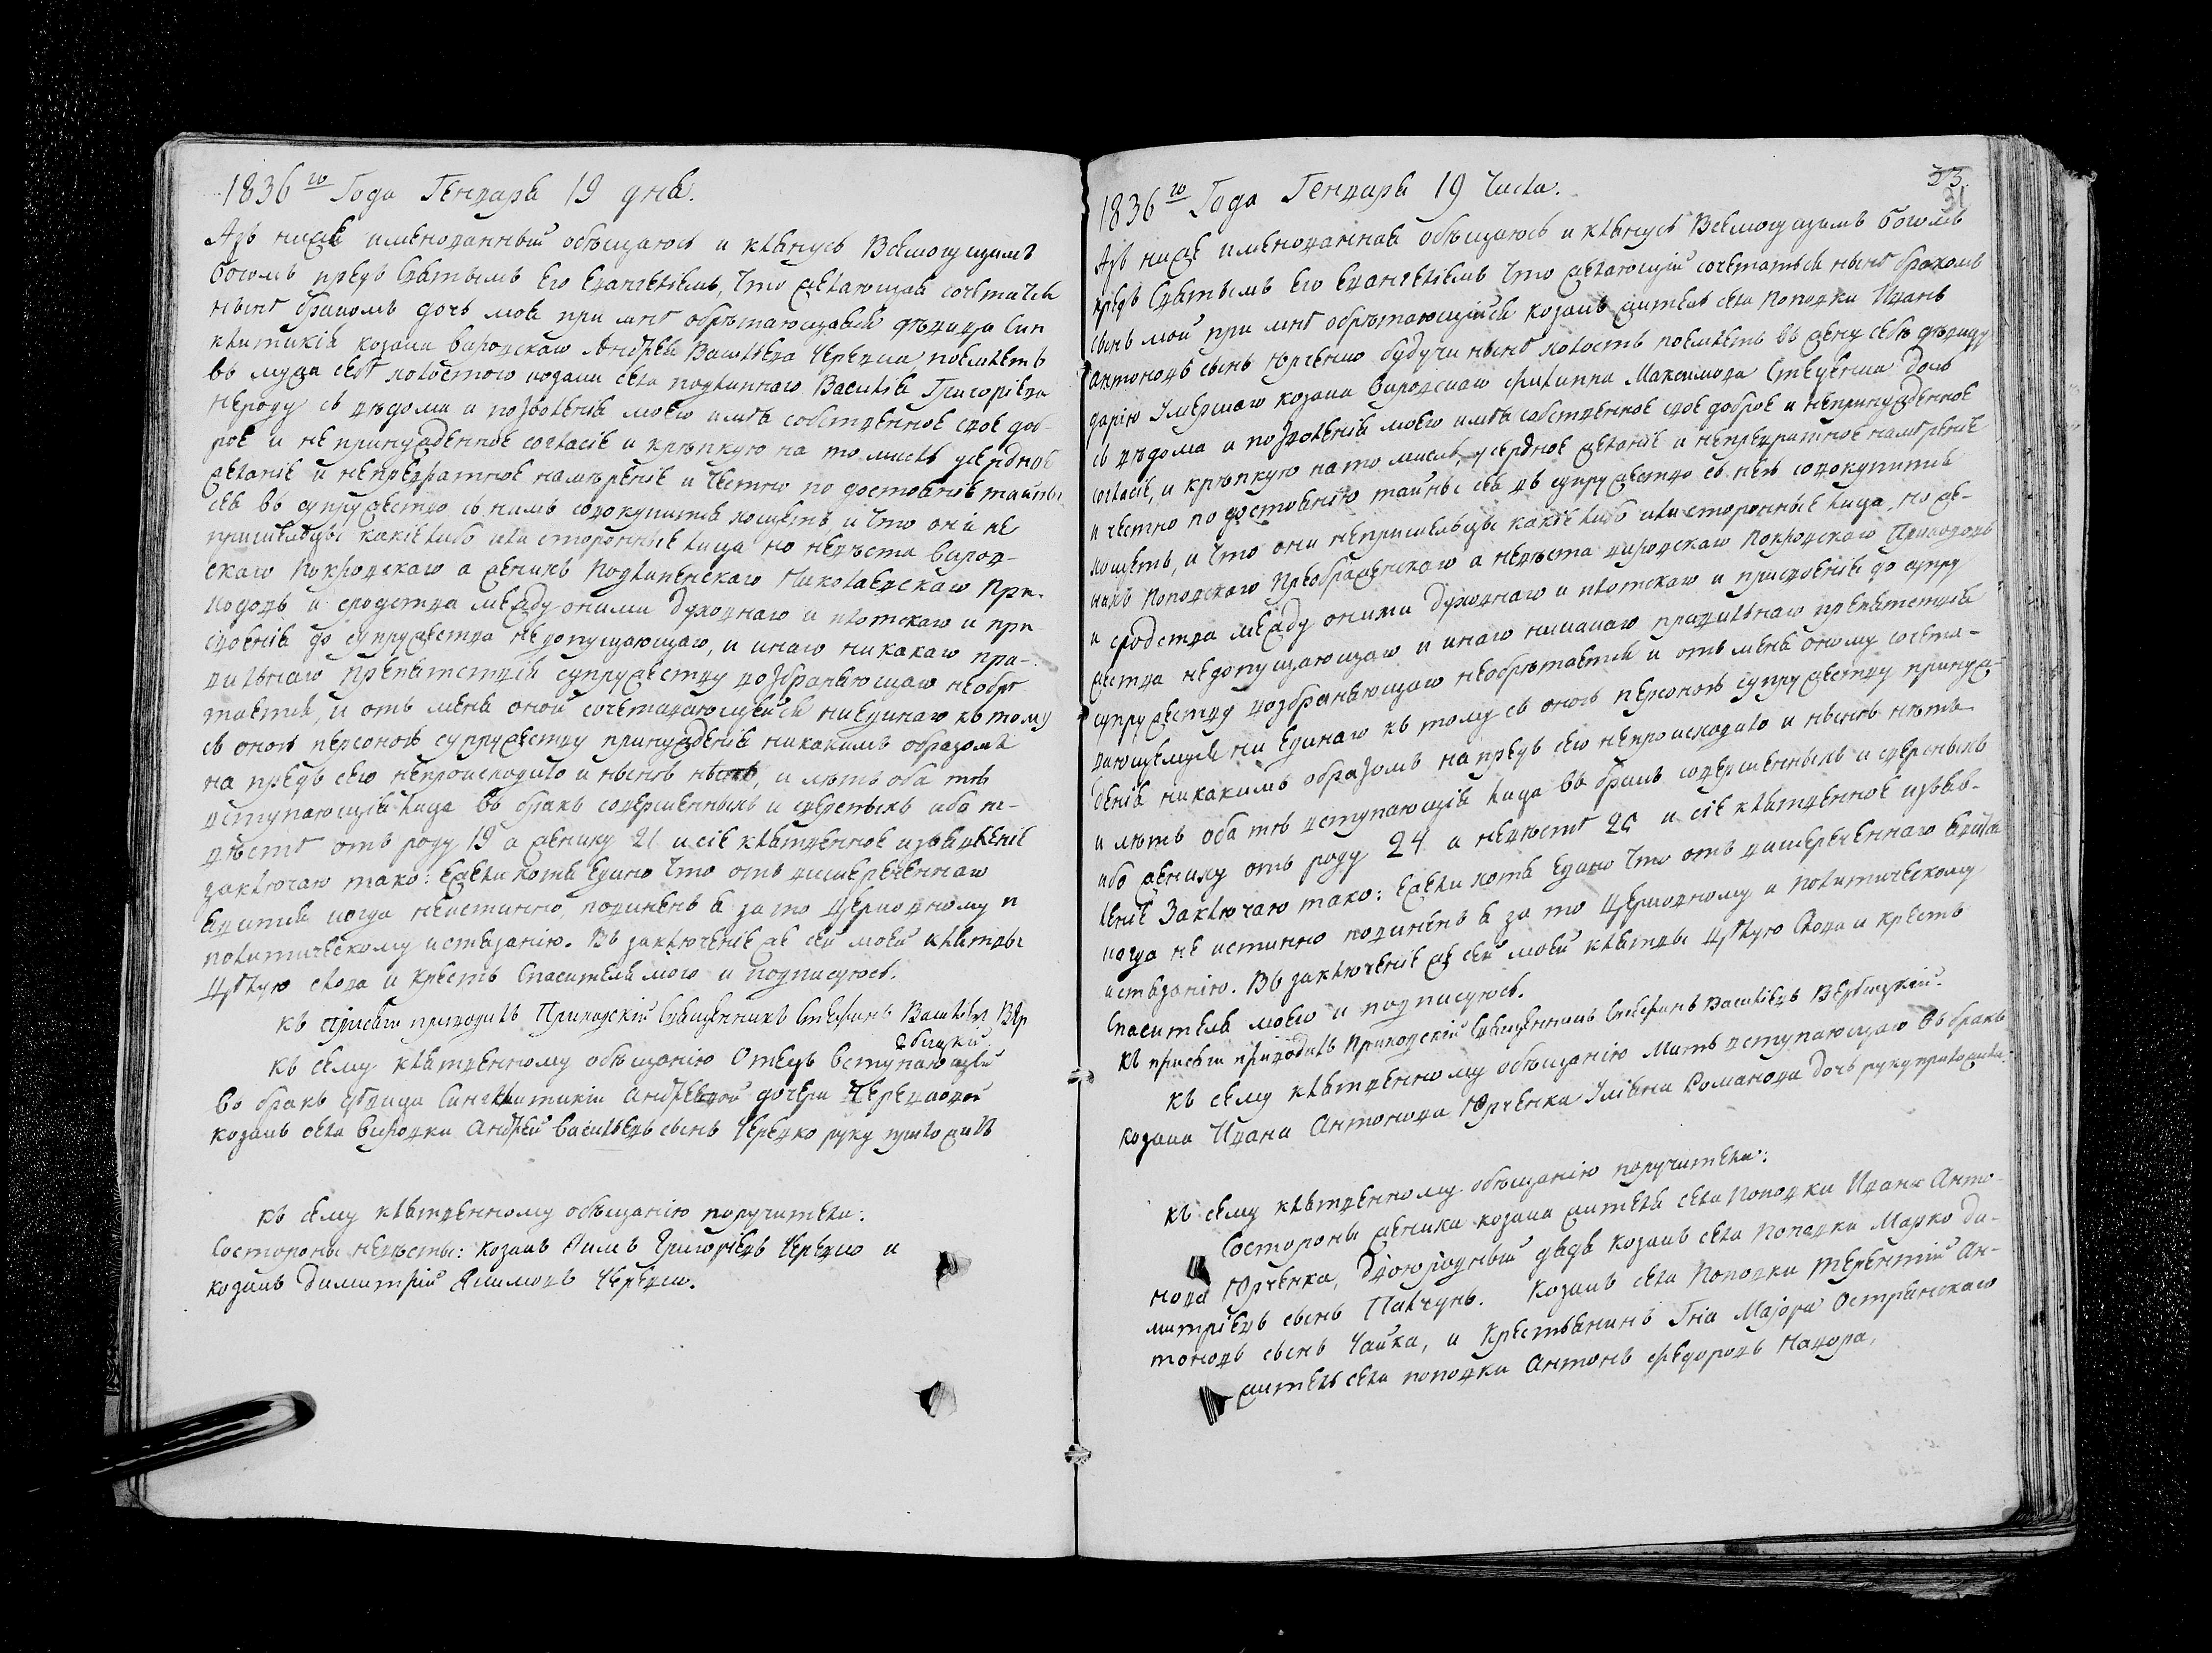 1836го Года Генваря 19 дня.
Азъ ниже именованный обѣщаюсь и клянусь Всемогущимъ
Богомъ предъ Святымъ Его Евангелiемъ, что желающая сочетатся
нынѣ бракомъ дочь моя при мнѣ обрѣтающаяся дѣвица Син
клитикiя козака Андрея Васильева Черевка поемлетъ
въ мужа себѣ холостого козака села Василiя Григорiева
съ вѣдома и позволенiя моего имѣя собственное свое доб-
рое и не принужденное согласiе и крѣпкую на то мысль усердное
желанiе и непревратное намѣренiе и честно по достоянiю тайны
сея въ супружество съ нимъ совокупится хощетъ и что они не
пришельцы какiе либо или стороннiе лица но невѣста Виров-
скаго Покровскаго а женихъ Николаевскаго При-
ходовъ и сродства между оними духовнаго и плотскаго и при-
своенiя до супружества недопущающаго, и инаго никакаго пра-
вильнаго препятствiя супружеству возбраняющаго необрѣ
тается, и отъ меня оной сочетавающейся ниединаго къ тому
съ оною персоною супружеству принужденiя никакимъ образомъ
на предъ сего непроисходило и нынѣ нѣтъ, и лѣтъ оба тѣ
вступающiя лица въ бракъ совершенныхъ и сверстыхъ ибо не-
вѣстѣ отъ роду 19 а жениху 21 и сiе клятвенное изъявленiе
заключаю тако: Ежели хотя едино что отъ вышереченнаго
явится когда неистинно, повиненъ я за то Церковному и
политическому истязанiю. Въ заключенiе же сей моей клятвы
Цѣлую слова и Крестъ Спасителя моего и подписуюсь.
Къ присяги приводилъ Приходскiй Священникъ Стефанъ Васильевъ Вер
бицкiй.
Къ сему клятвенному обѣщанiю Отецъ вступающей
во бракъ дѣвици Синклитикiи Андреевой дочери Черевковой
козакъ села Вировки Андрей Васильевъ сынъ Черевко руку приложилъ
Къ сему клятвенному обѣщанiю поручители:
Состороны невѣсты: Козакъ Якимъ Григорiевъ Черевко и
козакъ Димитрiй Якимовъ Черевко.
23.
31
1836го Года Генваря 19 Числа.
Азъ ниже именованная обѣщаюсь и клянусь Всемогущимъ Богомъ
предъ Святымъ Его Евангелiемъ что желающiй сочетаться нынѣ бракомъ
сынъ мой при мнѣ обрѣтающiйся козакъ житель села Поповки Иванъ
Антоновъ сынъ Юрченко будучи нынѣ холостъ поемлетъ въ жену себѣ дѣвицу
Дарiю Умершаго козака Вировскаго Филиппа Максимова дочь
съ вѣдома и позволенiя моего имѣя собственное свое доброе и непринужденное
согласiе, и крѣпкую на то мысль, усердное желанiе и непревратное намѣренiе
и честно по достоянiю тайны сея въ супружество съ нею совокупится
хощетъ, и что они непришельцы какiе либо или стороннiе лица, но же-
нихъ Поповскаго Преображенскаго а невѣста вировскаго Покровскаго Приходовъ
и сродства между оними духовнаго и плотскаго и присвоенiя до супру
жества недопущающаго и инаго никакаго правильнаго препятствiя
супружеству возбраняющаго необрѣтается и отъ меня оному сочета-
вающемуся ни единаго къ тому съ оною персоною супружеству принуж-
денiя никакимъ образомъ на предъ сего непроисходило и нынѣ нѣтъ
и лѣтъ оба тѣ вступающiя лица въ бракъ совершенныхъ и сверсныхъ
ибо жениху отъ роду 24 а невѣстѣ 20 и сiе клятвенное изъяв-
ленiе Заключаю тако: Ежели хотя едино что отъ вышереченнаго явится
когда не истинно повиненъ я за то Церковному и политическому
истязанiю. Въ заключенiе же сей моей клятвы Цѣлую слова и Крестъ
Спасителя моего и подписуюсь.
Къ присяги приводилъ Приходскiй Священникъ Стефанъ Васильевъ Вербицкiй.
Къ сему клятвенному обѣщанiю Мать вступающаго въ бракъ
козака Ивана Антонова Юрченка Улiяна Романова дочь руку приложила.
Къ сему клятвенному обѣщанiю поручители:
Состороны жениха козака жителя села Поповки Ивана Анто-
нова Юрченка, двоюродный дядя козакъ села Поповки Марко Ди-
митрiевъ сынъ Палчунъ. Козакъ села Поповки Терентiй Ан-
тоновъ сынъ Чайка, и Крестьянинъ Гна Маiора Острянскаго
житель села поповки Антонъ Федоровъ